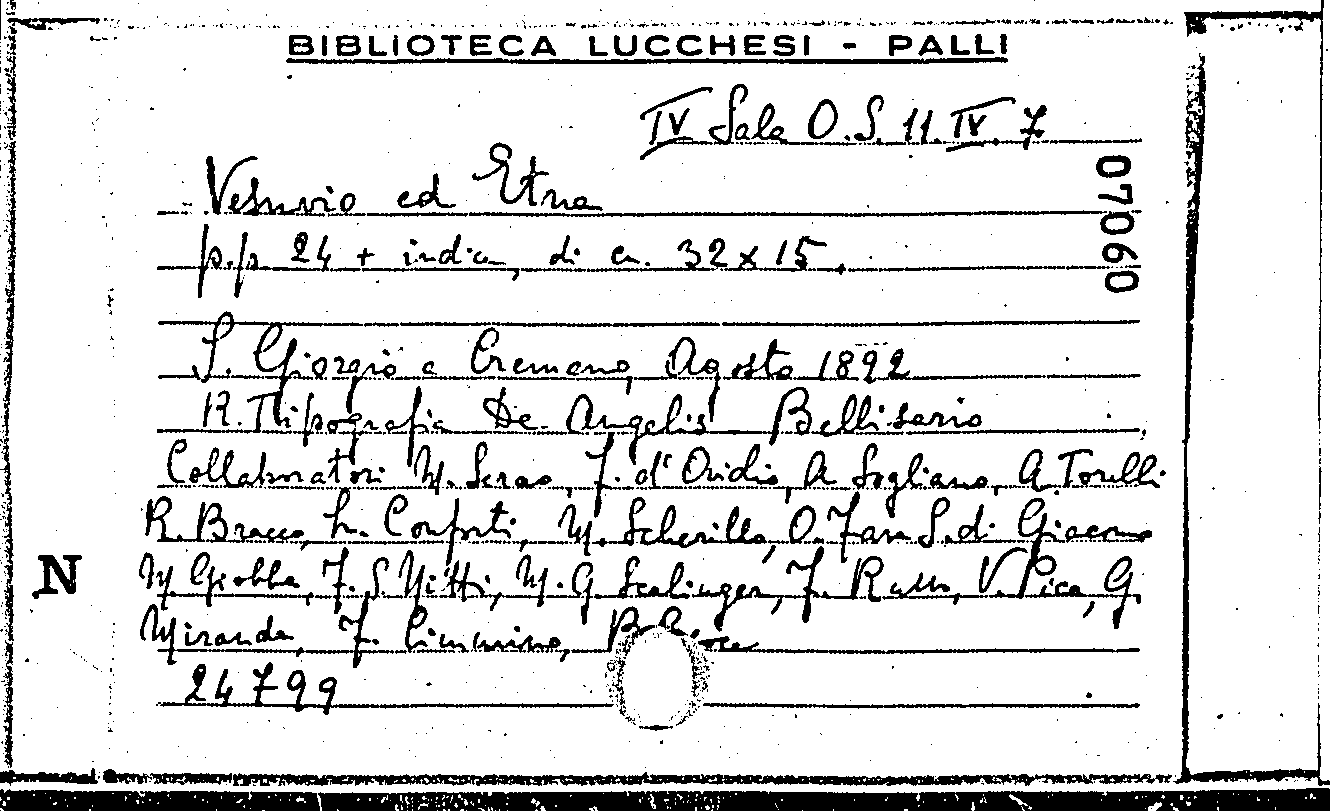 BIBLIOTECA LUCCHESI - PALLI
IV Sala O.S. 11. IV. 7
07060
Vesuvio ed Etna
p.p. 24 + indice, di cm. 32 x 15.
S. Giorgio a Cremano, Agosto 1892
R. Tipografia De Angelis - Bellisario
Collaboratori M. Serao, F. d'Ovidio, A Sogliano, A. Torelli
R. Bracco, L. Conforti, M. Scherillo, O. Fava S. di Giacomo
N
M. Giobbe, F. S. Nitti, M. G. Scalinger, F. Russo, V. Pica, G.
Miranda, F. Cimmino,
24799